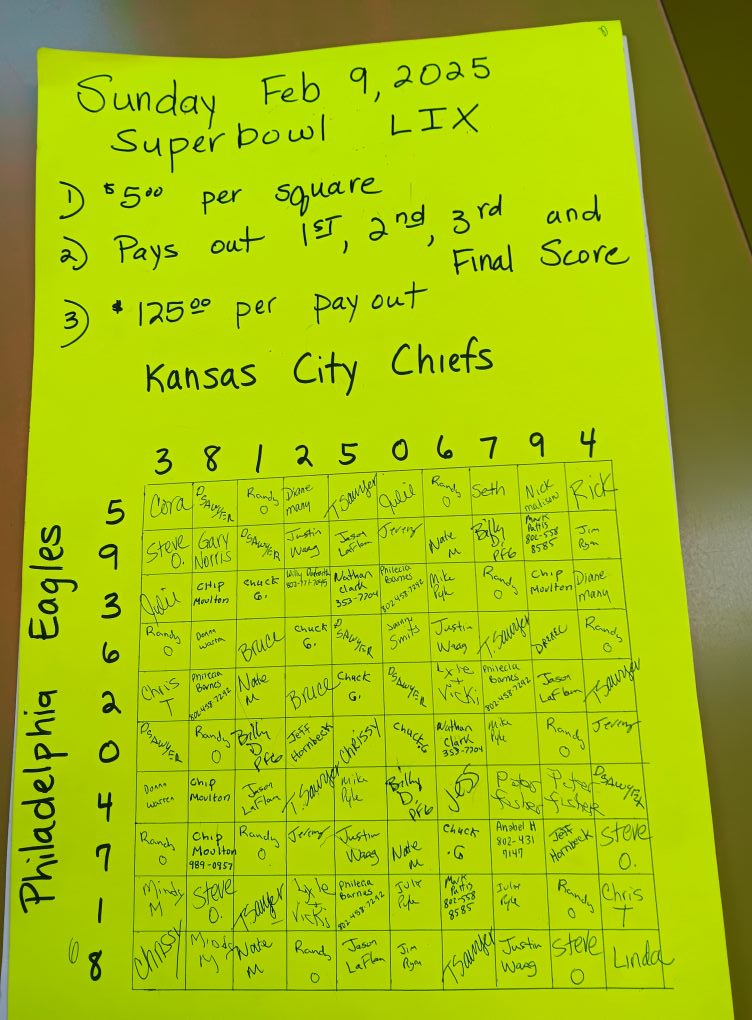 Sunday Feb 9, 2025
Superbowl LIX
1) $5.00 per square
2) Pays out 1ST, 2nd, 3rd and
Final Score
3) $125.00 per pay out
Kansas City Chiefs
Philadelphia Eagles
3 8 1 2 5 0 6 7 9 4
5 Cora DSAWYER Randy O Diane many TSawyer Julie Randy O Seth Nick Rick
9 Steve O. Gary Norris DSAWYER Justin Waag Jason LaFlam Jeremy Nate M Billy D. PF6 Mark Pattis 802-558 8585 Jim Ryan
3 Julie CHIP Moulton Chuck G. Willy Nathan Clark 353-7704 Philecia Barnes 802 458-7292 Mike Pyle Randy O Chip Moulton Diane many
6 Randy O Donna Warren Bruce Chuck G. DSAWYER Smits Justin Waag TSawyer Randy O
2 Chris T Philecia Barnes 802 458-7292 Nate M Bruce Chuck G. DSAWYER Lyle + Vicki Philecia Barnes 802 458-7292 Jason LaFlam TSawyer
0 DSAWYER Randy O Billy D PF6 Jeff Hornbeck CHRISSY Chuck G Nathan Clark 353-7704 Mike Pyle Randy O Jeremy
4 Donna Warren Chip Moulton Jason LaFlam TSawyer Mike Pyle Billy D. PF6 Jes Peter fisher Peter fisher DSAWYER
7 Randy O Chip Moulton 989-0957 Randy O Jeremy Justin Waag Nate M Chuck .G Anabel H 802-431 7147 Jeff Hornbeck Steve O.
1 Mindy M Steve O. TSawyer Lyle + Vicki Philecia Barnes 802 458-7292 July Pyle Mark Pattis 802-558 8585 July Pyle Randy O Chris T
8 CHRISSY Mindy M Nate M Randy O Jason LaFlam Jim Ryan TSawyer Justin Waag Steve O Linda